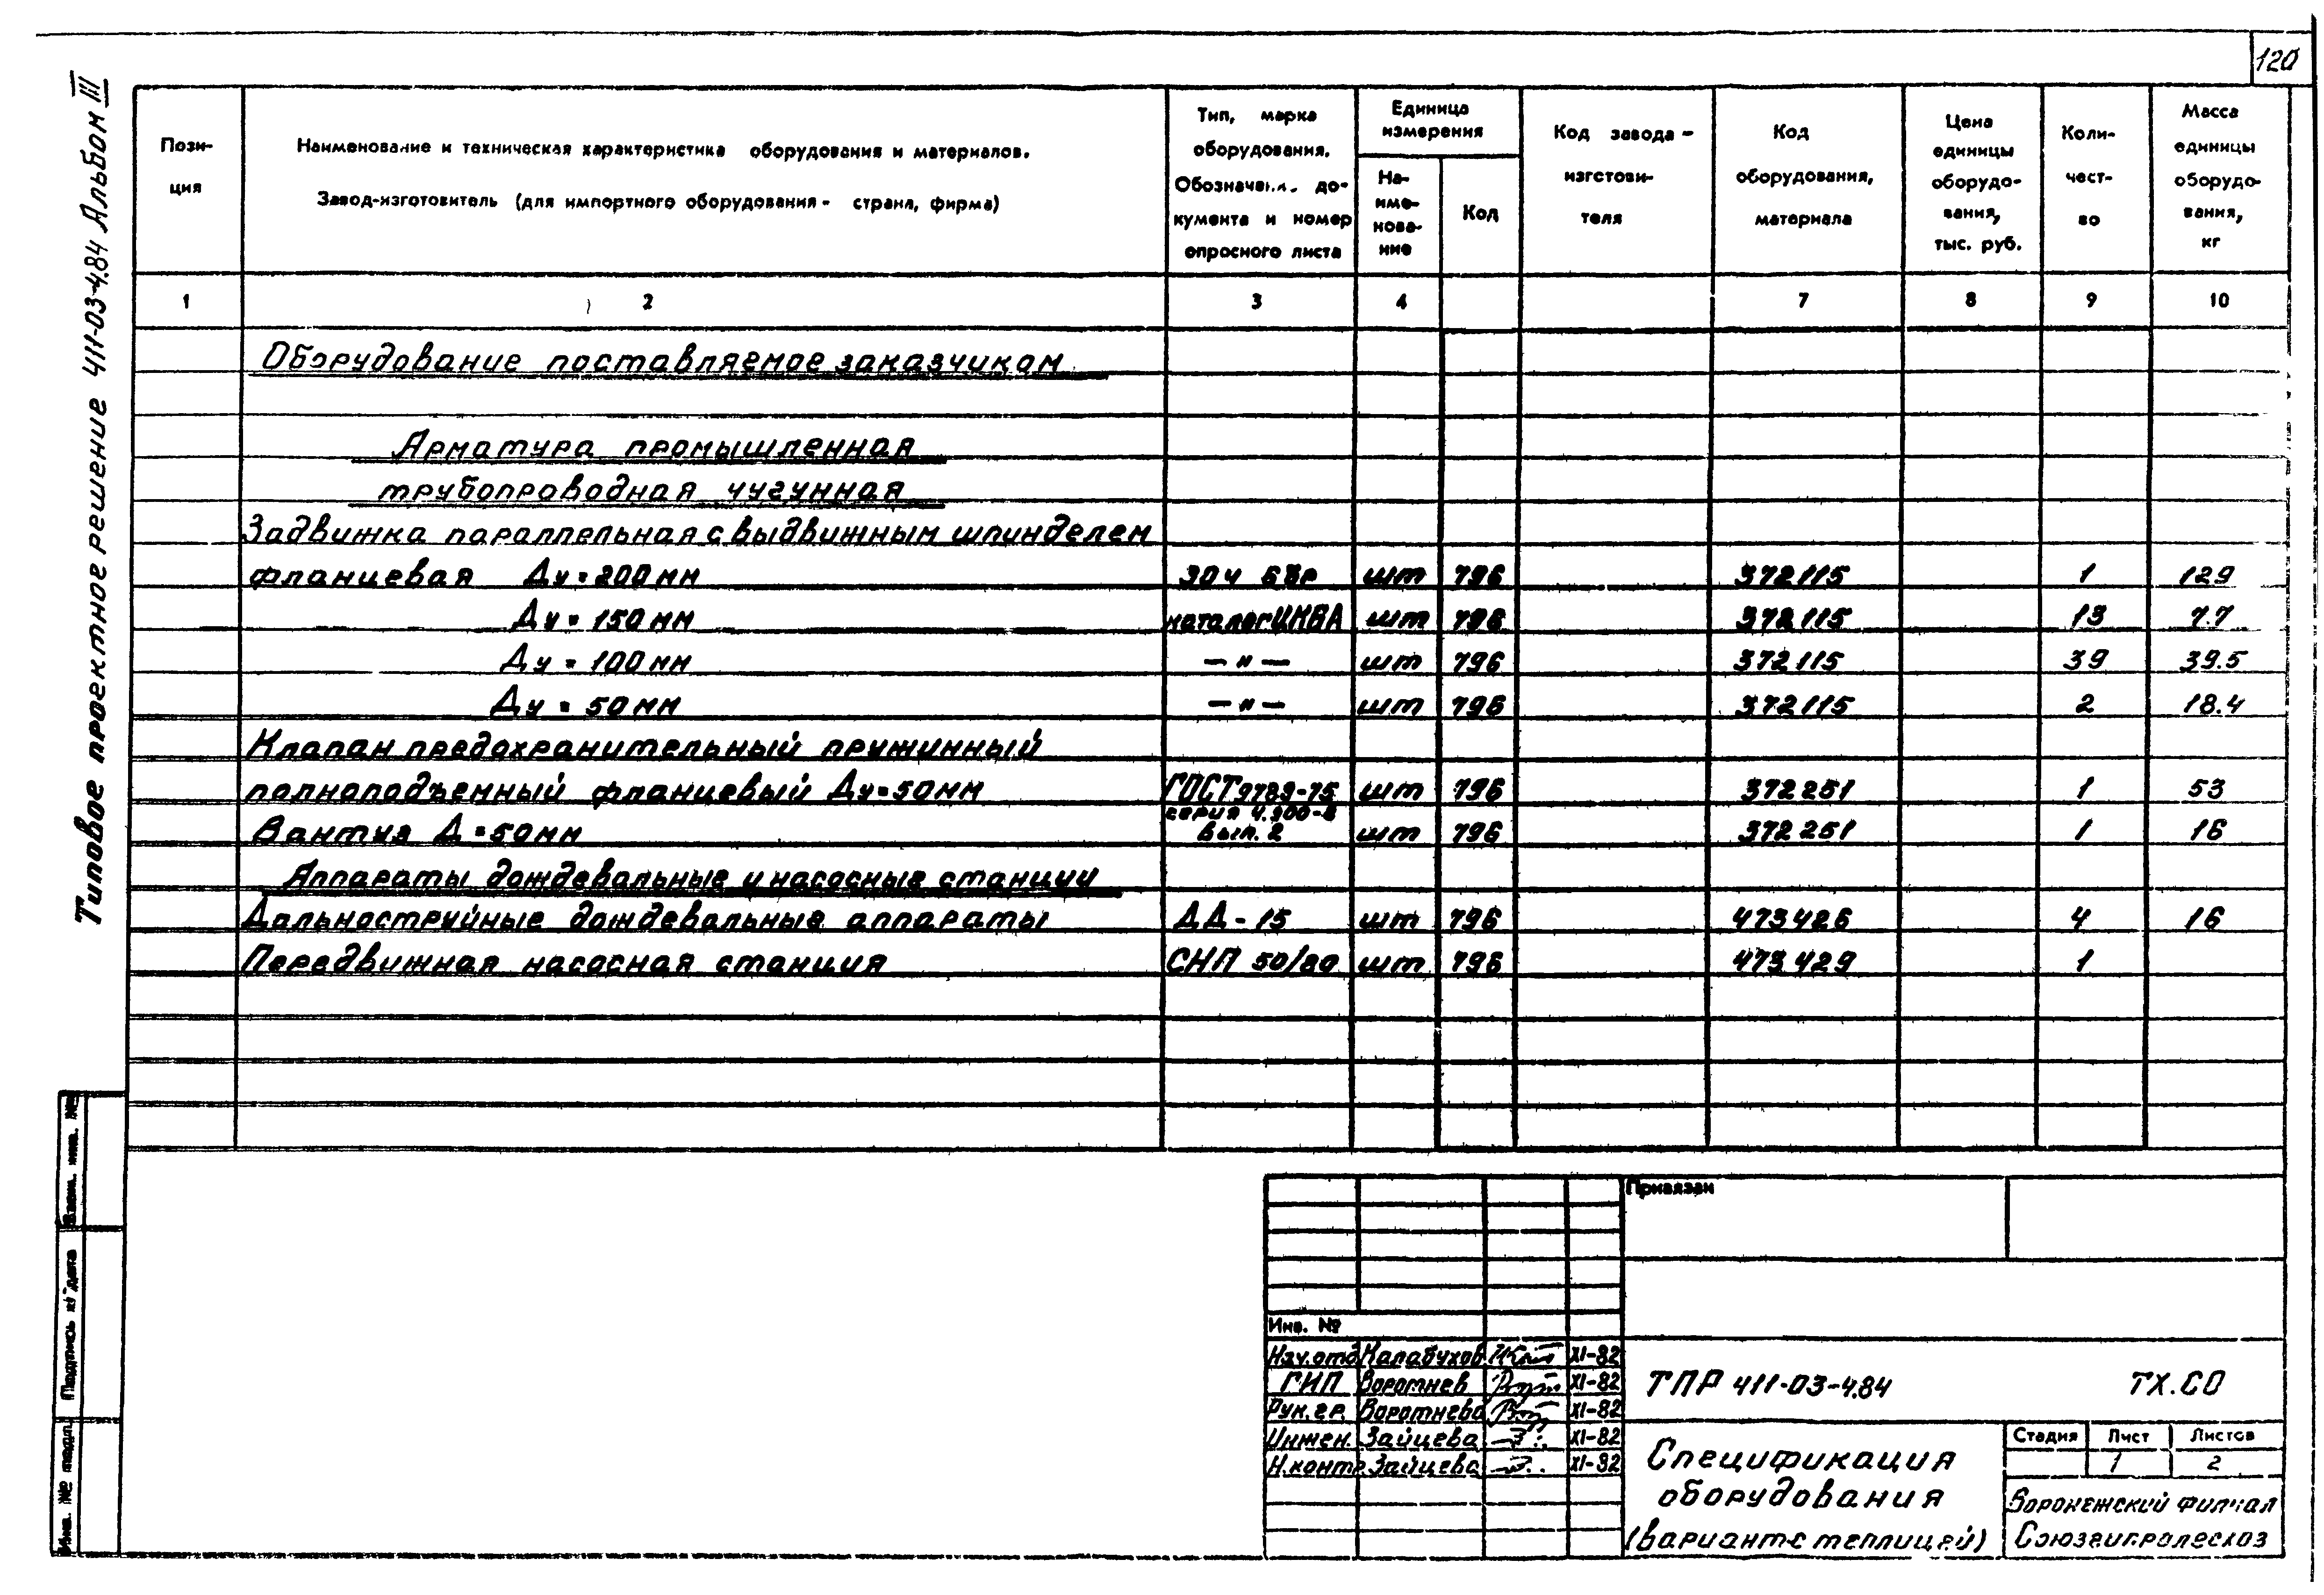 120
Типовое проектное решение 411-03-4.84 Альбом III
Пози-
ция
Наименование и техническая характеристика оборудования и материалов.
Завод-изготовитель (для импортного оборудования - страна, фирма)
Тип, марка
оборудования.
Обозначени. до-
кумента и номер
опросного листа
Единица
измерения
На-
име-
нова-
ние
Код
Код завода -
изготови-
теля
Код
оборудования,
материала
Цена
единицы
оборудо-
вания,
тыс. руб.
Коли-
чест-
во
Масса
единицы
оборудо-
вания,
кг
1 2 3 4 7 8 9 10
Оборудование поставляемое заказчиком
Арматура промышленная
трубопроводная чугунная
Задвижка параллельная с выдвижным шпинделем
фланцевая Ду=200мм 30ч 6бр шт 796 372115 1 129
Ду=150мм каталог ЦКБА шт 796 372115 13 7.7
Ду=100мм —"— шт 796 372115 39 39.5
Ду=50мм —"— шт 796 372115 2 18.4
Клапан предохранительный пружинный
полноподъемный фланцевый Ду=50мм ГОСТ 9789-75 шт 796 372251 1 53
серия 4.900-8
Вантуз Д=50мм Вып. 2 шт 796 372251 1 16
Аппараты дождевальные и насосные станции
Дальноструйные дождевальные аппараты ДД-15 шт 796 473426 4 16
Передвижная насосная станция СНП 50/80 шт 796 473429 1
Взам. инв. №
Подпись и дата
Инв. № подл.
Привязан
Инв. №
Нач.отд Калабухов XI-82
ГИП Воротнев XI-82
Рук.гр. Воротнева XI-82
Инжен. Зайцева XI-82
Н.контр Зайцева XI-82
ТПР 411-03-4.84 ТХ.СО
Спецификация
оборудования
(вариант с теплицей)
Стадия Лист Листов
1 2
Воронежский филиал
Союзгипролесхоз